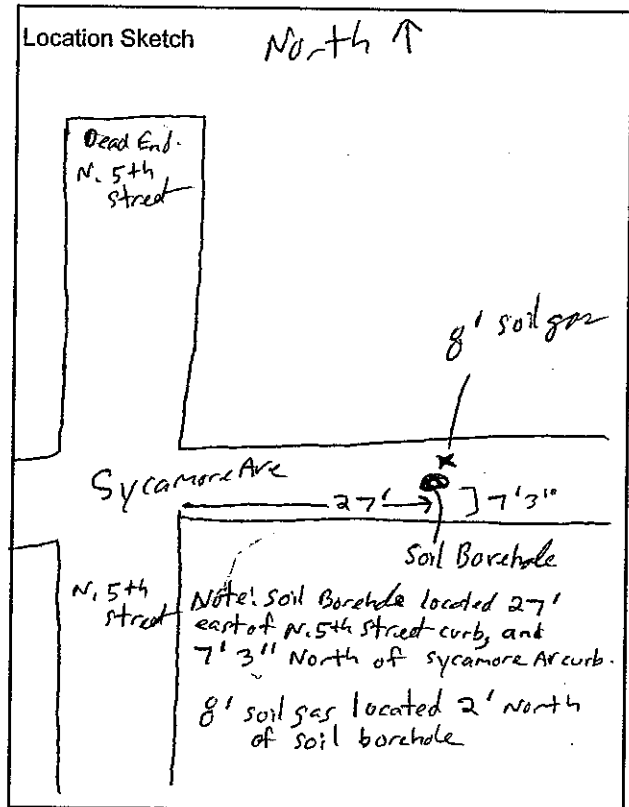 Location Sketch
North ↑
Dead End.
N. 5th
street
8' soil gas
Sycamore Ave
27'
7'3"
Soil Borehole
N. 5th
street
Note: Soil Borehole located 27'
east of N. 5th street curb, and
7' 3" North of Sycamore Av curb.
8' soil gas located 2' North
of soil borehole